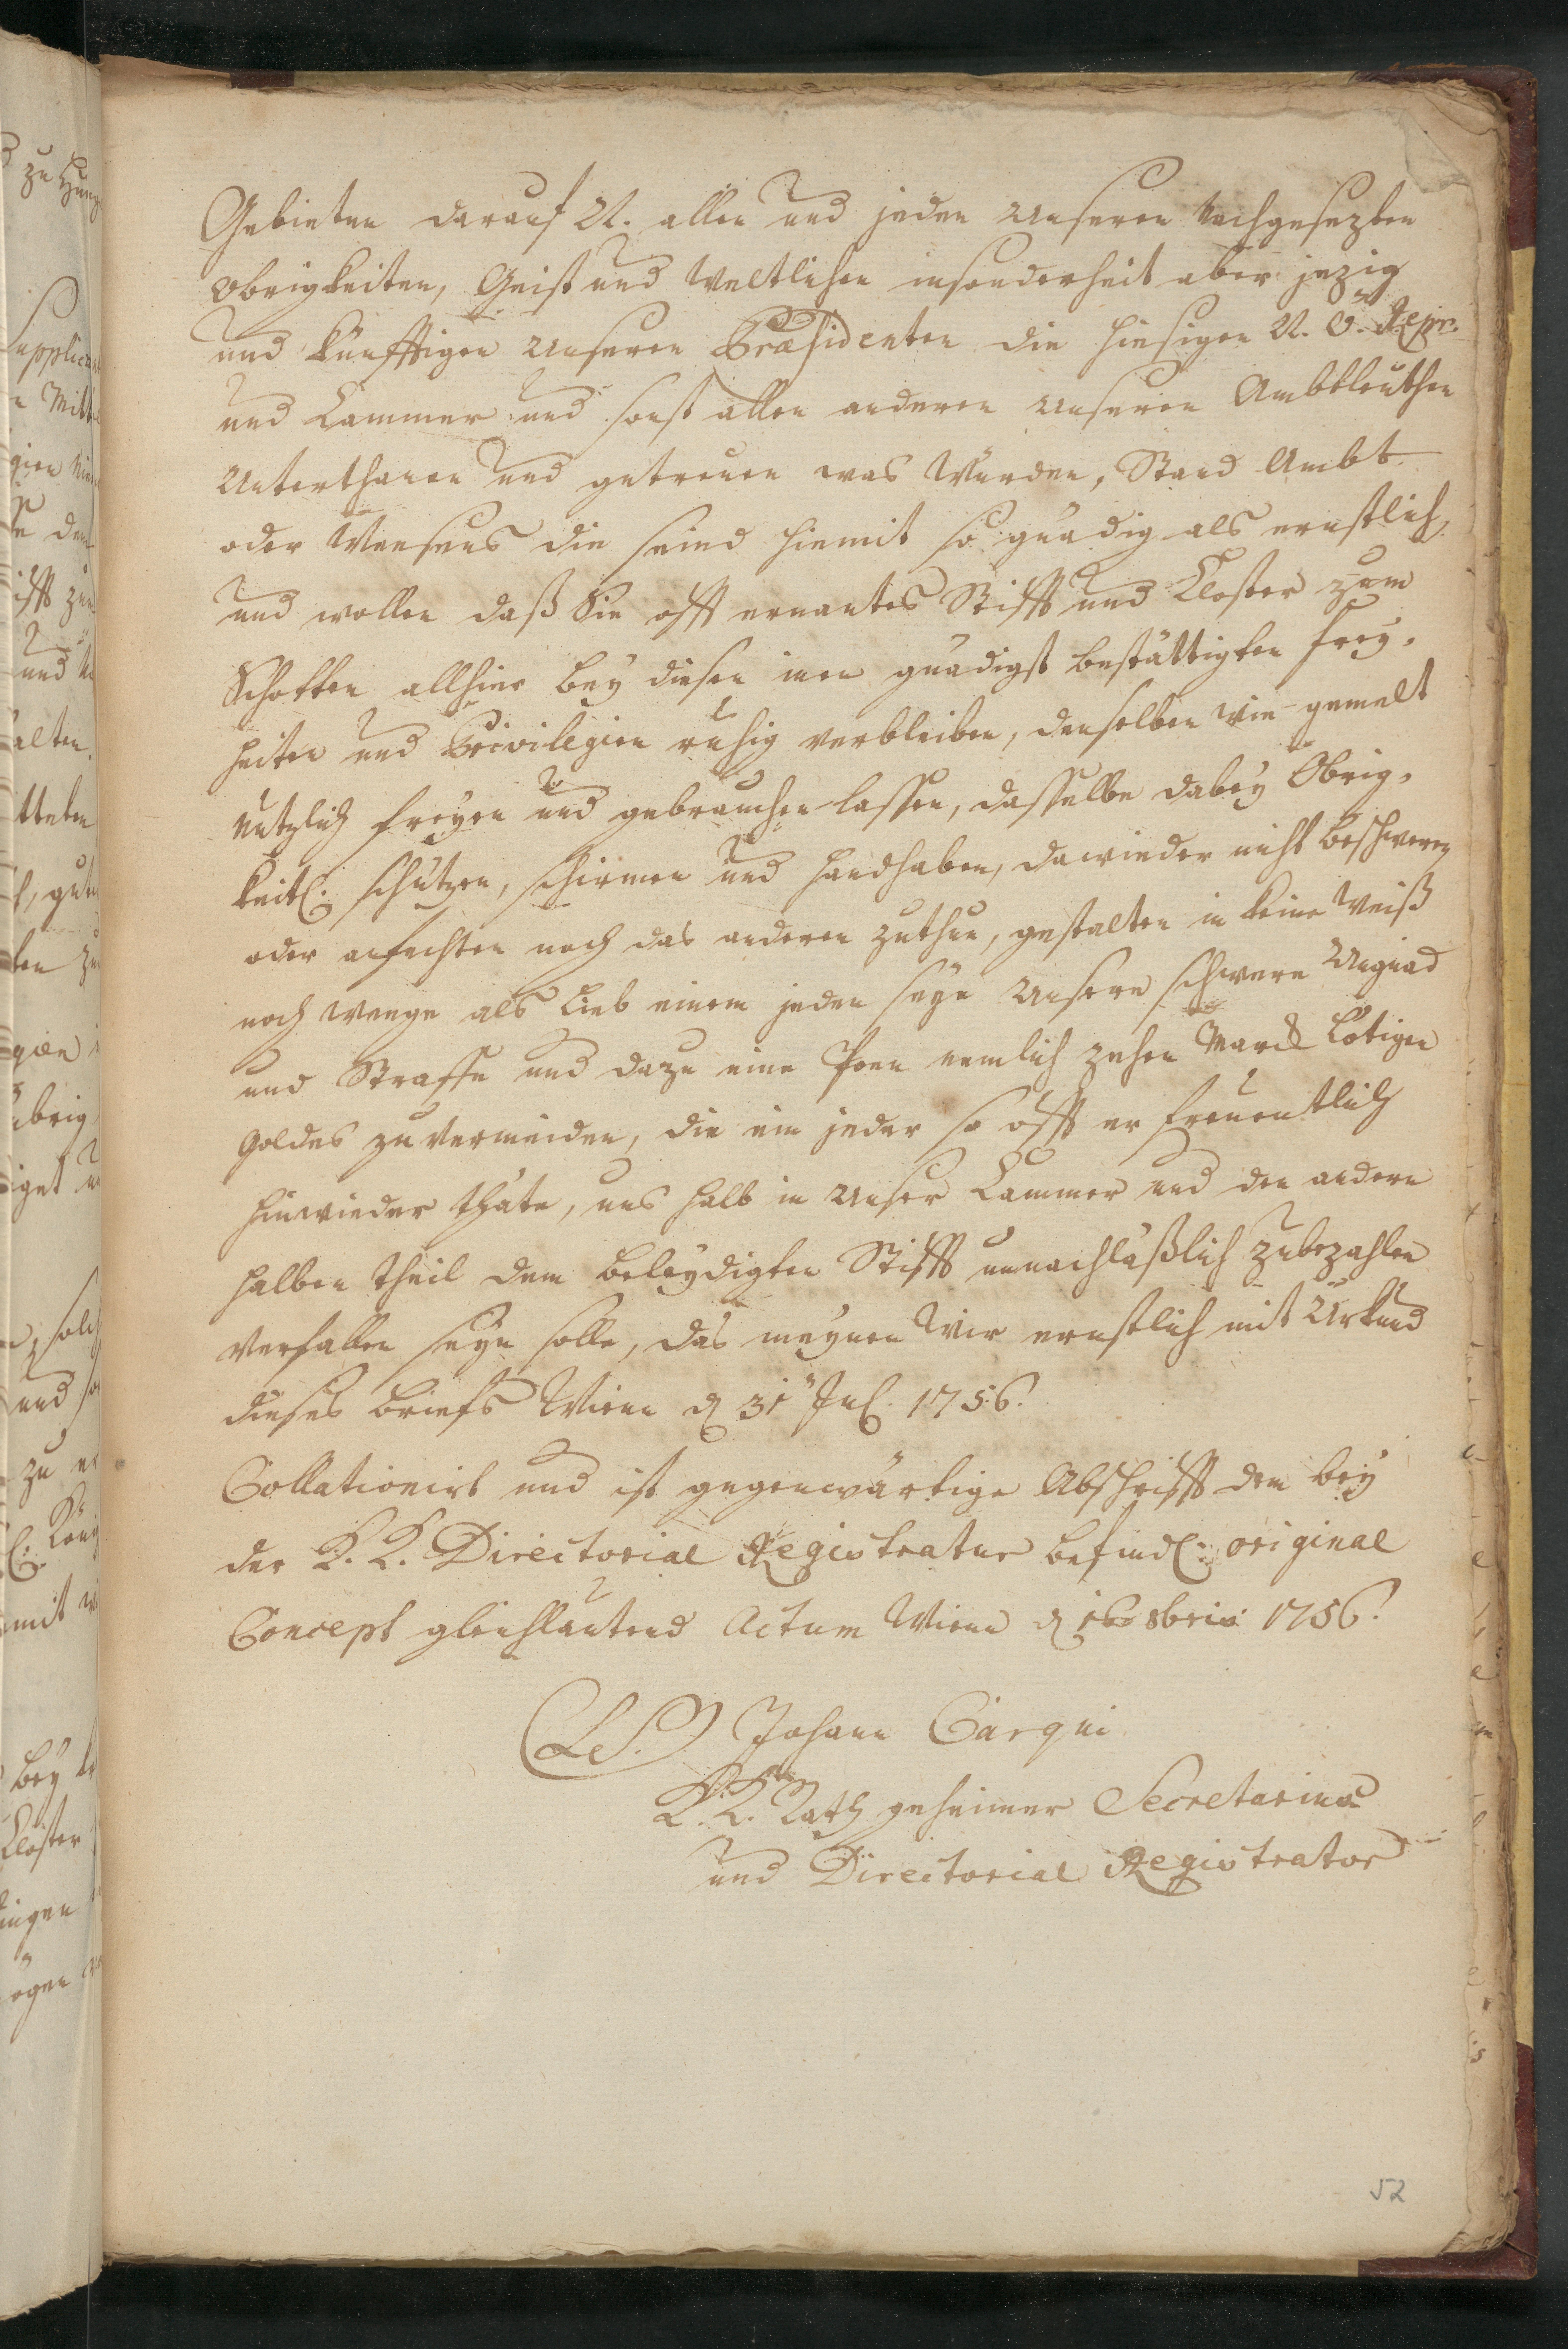 Gebieten darauf N. allen und jeden Unseren Nachgesezten
Obrigkeiten, Geist und Weltlichen insonderheit aber jezig
und künfftigen Unseren Præsidenten die hiesigen N. Ö. Repr.
und Cammer und sonst allen anderen Unseren Ambtleuthen
Unterthanen und getreuen was Würden, Stand Ambt
oder Weesens die seind hiemit so gnädig als ernstlich,
und wollen daß Sie offt ernantes Stifft und Closter zum
Schotten allhier bey diesen gnädigst bestättigten Frey-
heiten und Privilegien ruhig verbleiben, denselben wie gemelt
nutzlich freyen und gebrauchen lassen, dasselbe dabey Obrig-
keitl. schützen, schirmen und handhaben, dawieder nicht beschweren
oder anfechten noch das anderen zuthun, gestatten in keine Weiß
noch weege als Lieb einem jeden seye Unsere schwere Ungnad
und Straffe und dazu eine Poen nemlich zehen Marck Lötigen
Goldes zu vermeiden, die ein jeder so offt er freventlich
hinwieder thäte, uns halb in Unser Cammer und den andern
halben theil dem beleydigten Stifft unnachläßlich zubezahlen
verfallen seyn solle, das meynen Wir ernstlich mit Urkund
dieses Briefs Wienn d 31 Jul. 1756.
Collationirt und ist gegenwärtige Abschrifft dem bey
der K. K. Directorial Registratur befindl: original
Concept gleichlautend Actum Wienn d 16 8bris 1756.
(L.S.) Johann Cärqui
K. K. Rath geheimer Secretarius
und Directorial Registrator
52